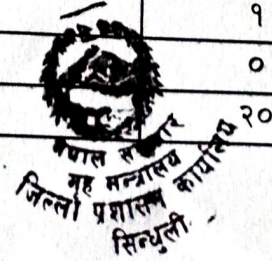 १
०
२०
नेपाल सरकार
गृह मन्त्रालय
जिल्ला प्रशासन कार्यालय
सिन्धुली